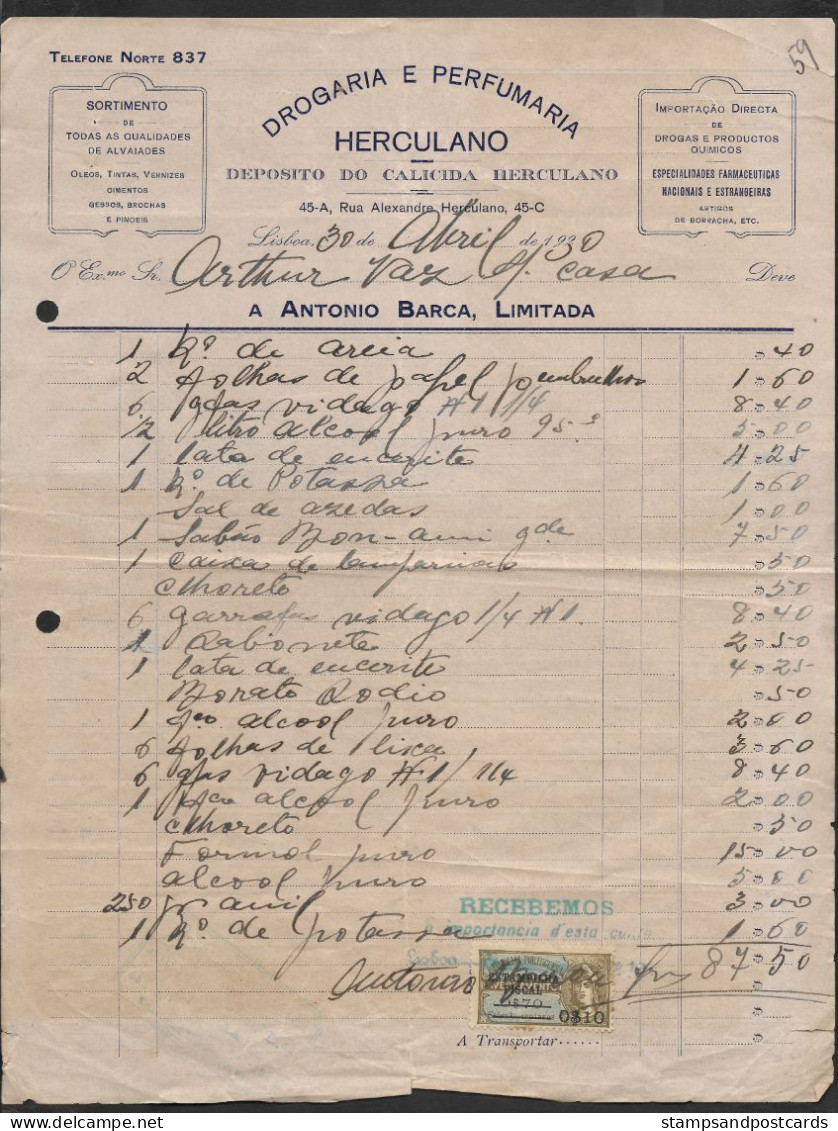 TELEFONE NORTE 837
59
SORTIMENTO
DE
TODAS AS QUALIDADES
DE ALVAIADES
OLEOS, TINTAS, VERNIZES
CIMENTOS
GESSOS, BROCHAS
E PINCEIS
DROGARIA E PERFUMARIA
HERCULANO
DEPOSITO DO CALICIDA HERCULANO
45-A, Rua Alexandre Herculano, 45-C
IMPORTAÇÃO DIRECTA
DE
DROGAS E PRODUCTOS
QUIMICOS
ESPECIALIDADES FARMACEUTICAS
NACIONAIS E ESTRANGEIRAS
ARTIGOS
DE BORRACHA, ETC.
Lisboa, 30 de Abril de 1930
O Ex.mo Sr. Arthur Vaz s/ casa Deve
A ANTONIO BARCA, LIMITADA
1 K.º de areia $40
2 folhas de papel p embrulho 1$60
6 gfas vidago Nº1 1/4 8$40
1/2 litro alcool puro 95º 5$00
1 lata de encerite 4$25
1 K.º de Potassa 1$60
Sal de azedas 1$00
1 Sabão Bon-ami gde 7$50
1 caixa de lamparinas $50
Chloreto $50
6 garrafas vidago 1/4 Nº1 8$40
1 Sabonete 2$50
1 lata de encerite 4$25
Borato Sodio $50
1 alcool puro 2$00
6 folhas de lixa 3$60
6 gfas vidago Nº1/ 1/4 8$40
1 alcool puro 2$00
Chloreto $50
Formol puro 15$00
alcool puro 5$00
250 gr anil 3$00
1 K.º de potassa 1$60
RECEBEMOS
a importancia d'esta conta
Lisboa
87$50
Antonio
ESTAMPILHA
FISCAL
0$70
0$10
A Transportar......
stampsandpostcards